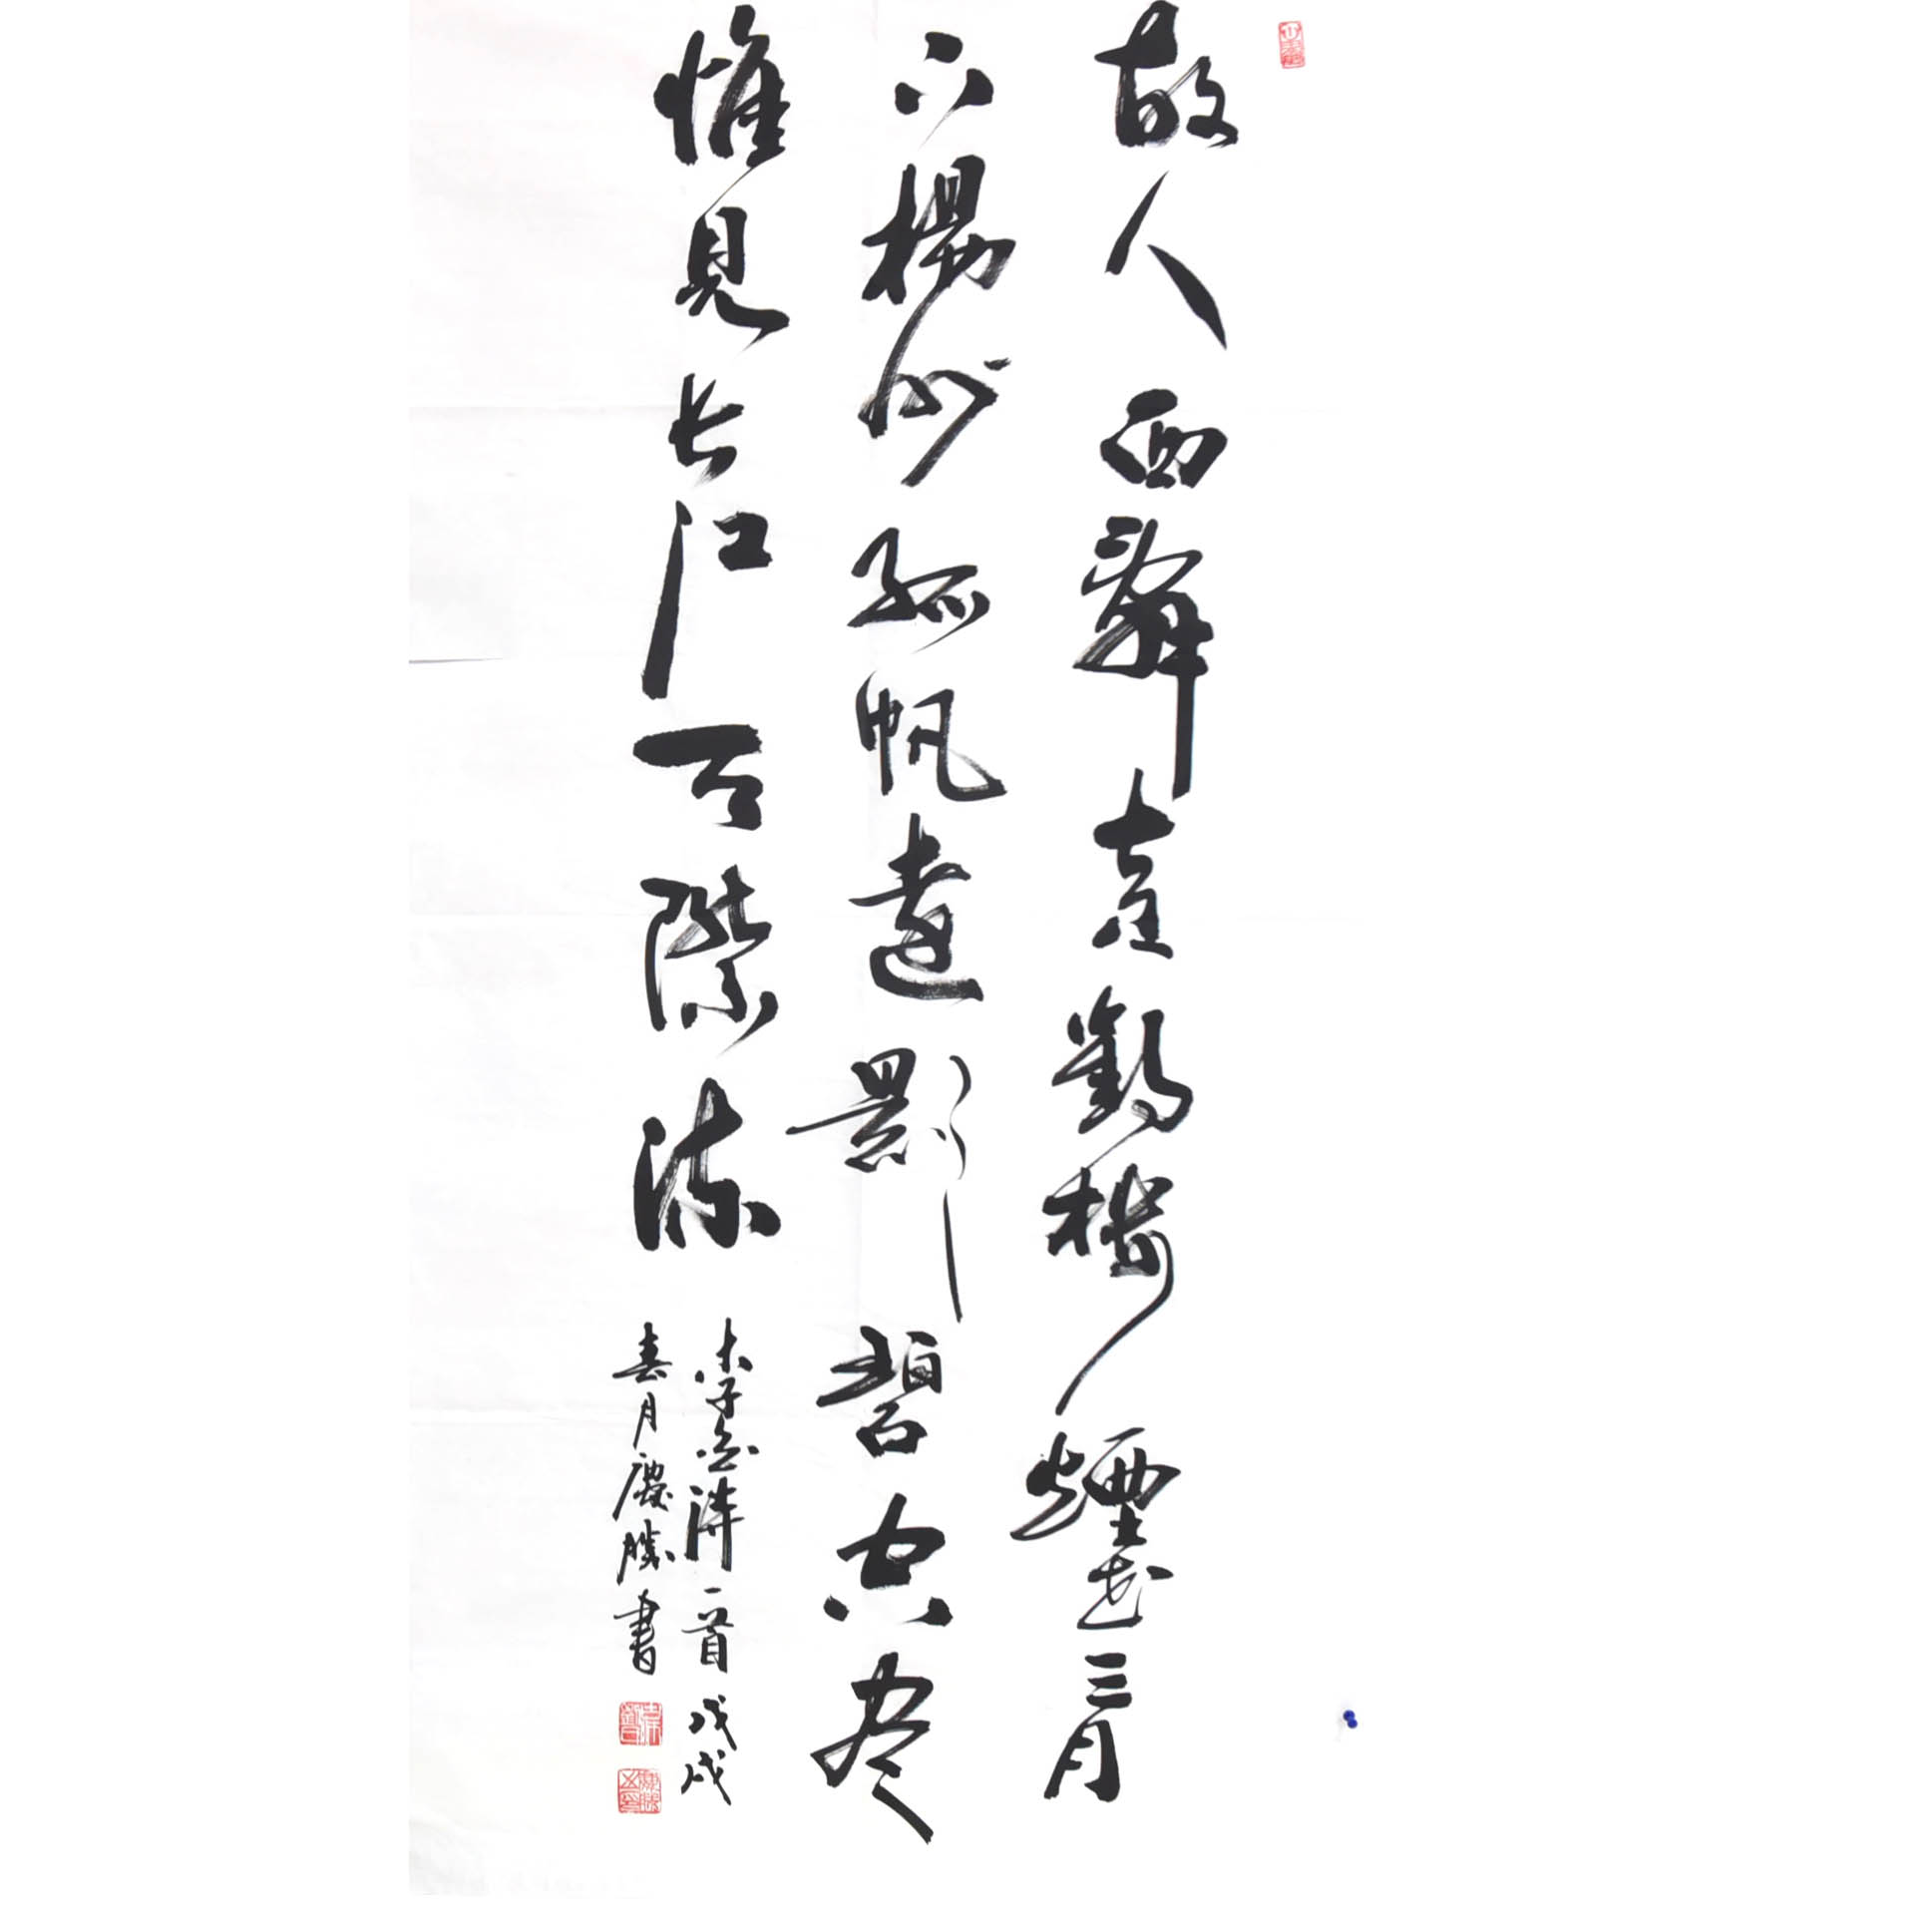 故人西辭黃鶴樓煙花三月
下楊州孤帆遠影碧空尽
惟見長江天際流
李白詩一首 戊戌
春月慶勝書